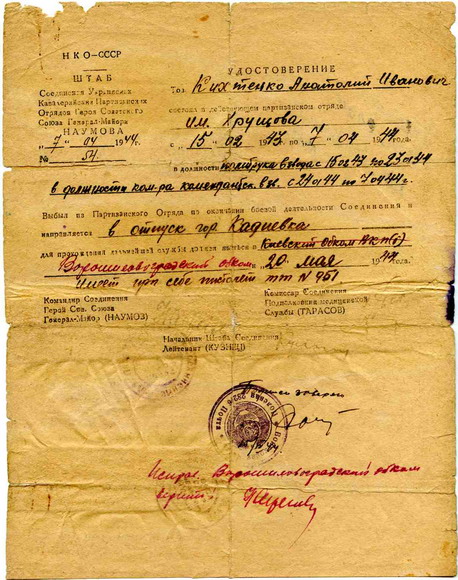 НКО—СССР
ШТАБ
Соединения Украинских
Кавалерийских Партизанских
Отрядов Героя Советского
Союза Генерал-Майора
НАУМОВА
"7" 04 1944г.
№ 54.
УДОСТОВЕРЕНИЕ
Тов. Кихтенко Анатолий Иванович
состоял в действующем партизанском отряде
им. Хрущова
с „15" 02 1943 по „7" 04 1944
в должности политрука взвода с 15 02 43 по 23 01 44
в должности ком-ра комендантск. вз. с 24 01 44 по 7 04 44 г.
Выбыл из Партизанского Отряда по окончании боевой деятельности Соединения и
направляется в отпуск гор. Кадиевка
для прохождения дальнейшей службы должен явиться в Киевский Обком КП(б)
Ворошиловградский обком „20" мая 1944 года.
Имеет при себе пистолет ТТ № 951
Командир Соединения
Герой Сов. Союза
Генерал-Майор (НАУМОВ)
Комиссар Соединения
Подполковник медицинской
Службы (ТАРАСОВ)
Начальник Штаба Соединения
Лейтенант (КУЗНЕЦ)
Ворошиловградский обком